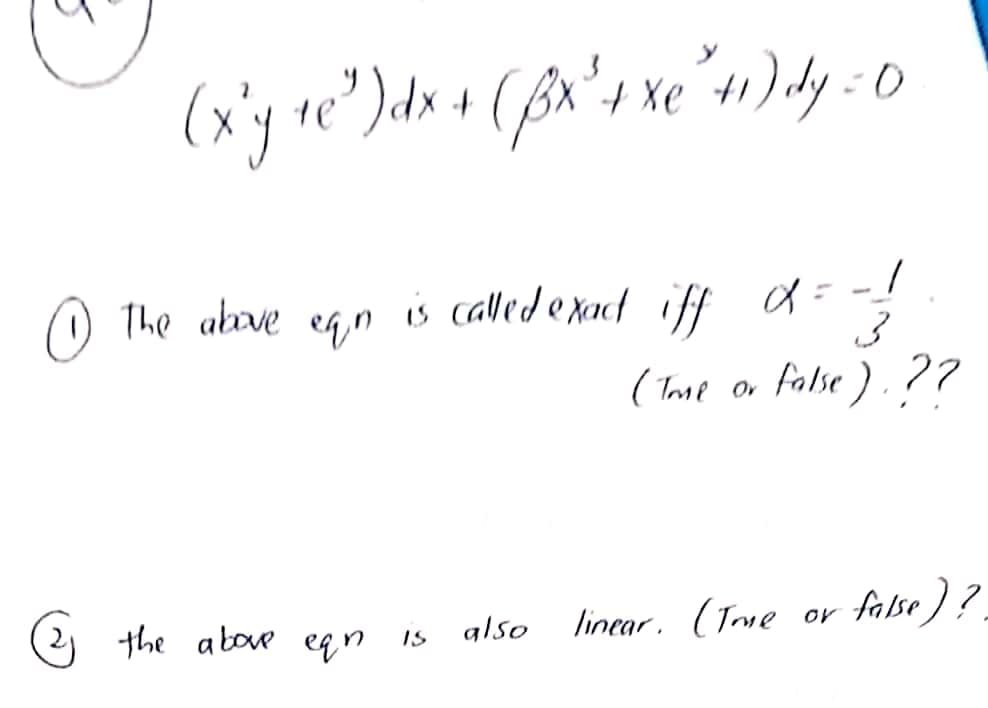 (x²y + e^y)dx + (βx³ + xe^y + 1)dy = 0
① The above eqn is called exact iff α = -1/3.
(True or false).??
② the above eqn is also linear. (True or false)?.